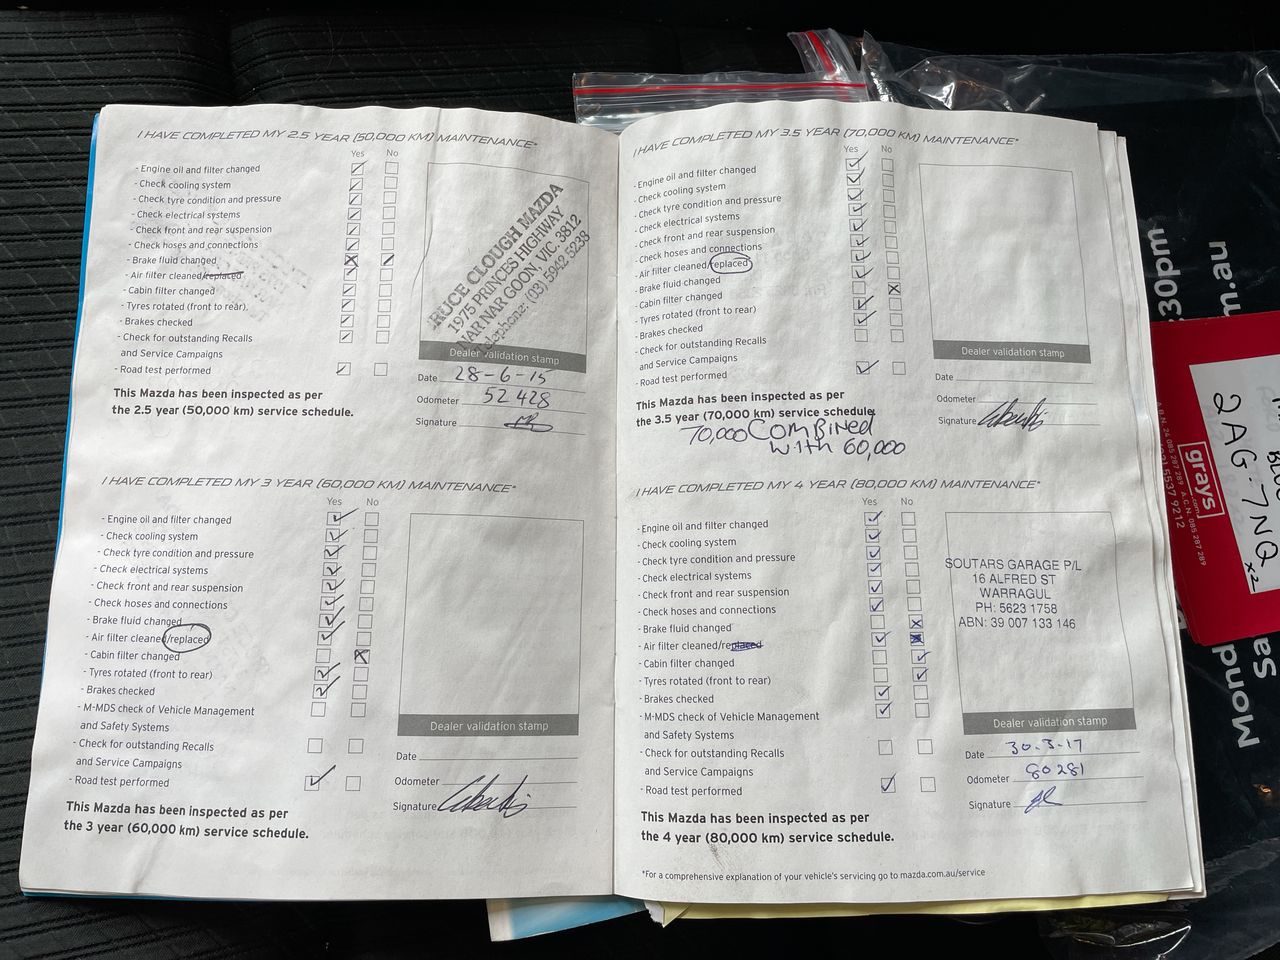 I HAVE COMPLETED MY 2.5 YEAR (50,000 KM) MAINTENANCE*
Yes No
- Engine oil and filter changed
- Check cooling system
- Check tyre condition and pressure
- Check electrical systems
- Check front and rear suspension
- Check hoses and connections
- Brake fluid changed
- Air filter cleaned/replaced
- Cabin filter changed
- Tyres rotated (front to rear)
- Brakes checked
- Check for outstanding Recalls
and Service Campaigns
- Road test performed
This Mazda has been inspected as per
the 2.5 year (50,000 km) service schedule.
RUCE CLOUGH MAZDA
1975 PRINCES HIGHWAY
NAR NAR GOON, VIC. 3812
elephone: (03) 5942 5238
Dealer validation stamp
Date 28-6-15
Odometer 52428
Signature
I HAVE COMPLETED MY 3 YEAR (60,000 KM) MAINTENANCE*
Yes No
- Engine oil and filter changed
- Check cooling system
- Check tyre condition and pressure
- Check electrical systems
- Check front and rear suspension
- Check hoses and connections
- Brake fluid changed
- Air filter cleaned/replaced
- Cabin filter changed
- Tyres rotated (front to rear)
- Brakes checked
- M-MDS check of Vehicle Management
and Safety Systems
- Check for outstanding Recalls
and Service Campaigns
- Road test performed
This Mazda has been inspected as per
the 3 year (60,000 km) service schedule.
Dealer validation stamp
Date
Odometer
Signature
I HAVE COMPLETED MY 3.5 YEAR (70,000 KM) MAINTENANCE*
Yes No
- Engine oil and filter changed
- Check cooling system
- Check tyre condition and pressure
- Check electrical systems
- Check front and rear suspension
- Check hoses and connections
- Air filter cleaned/replaced
- Brake fluid changed
- Cabin filter changed
- Tyres rotated (front to rear)
- Brakes checked
- Check for outstanding Recalls
and Service Campaigns
- Road test performed
This Mazda has been inspected as per
the 3.5 year (70,000 km) service schedule.
70,000 COMBINED
with 60,000
Dealer validation stamp
Date
Odometer
Signature
I HAVE COMPLETED MY 4 YEAR (80,000 KM) MAINTENANCE*
Yes No
- Engine oil and filter changed
- Check cooling system
- Check tyre condition and pressure
- Check electrical systems
- Check front and rear suspension
- Check hoses and connections
- Brake fluid changed
- Air filter cleaned/replaced
- Cabin filter changed
- Tyres rotated (front to rear)
- Brakes checked
- M-MDS check of Vehicle Management
and Safety Systems
- Check for outstanding Recalls
and Service Campaigns
- Road test performed
This Mazda has been inspected as per
the 4 year (80,000 km) service schedule.
SOUTARS GARAGE P/L
16 ALFRED ST
WARRAGUL
PH: 5623 1758
ABN: 39 007 133 146
Dealer validation stamp
Date 30.3.17
Odometer 80281
Signature
*For a comprehensive explanation of your vehicle's servicing go to mazda.com.au/service
grays
.com
2AG-7NQ
x2
537 9212
30pm